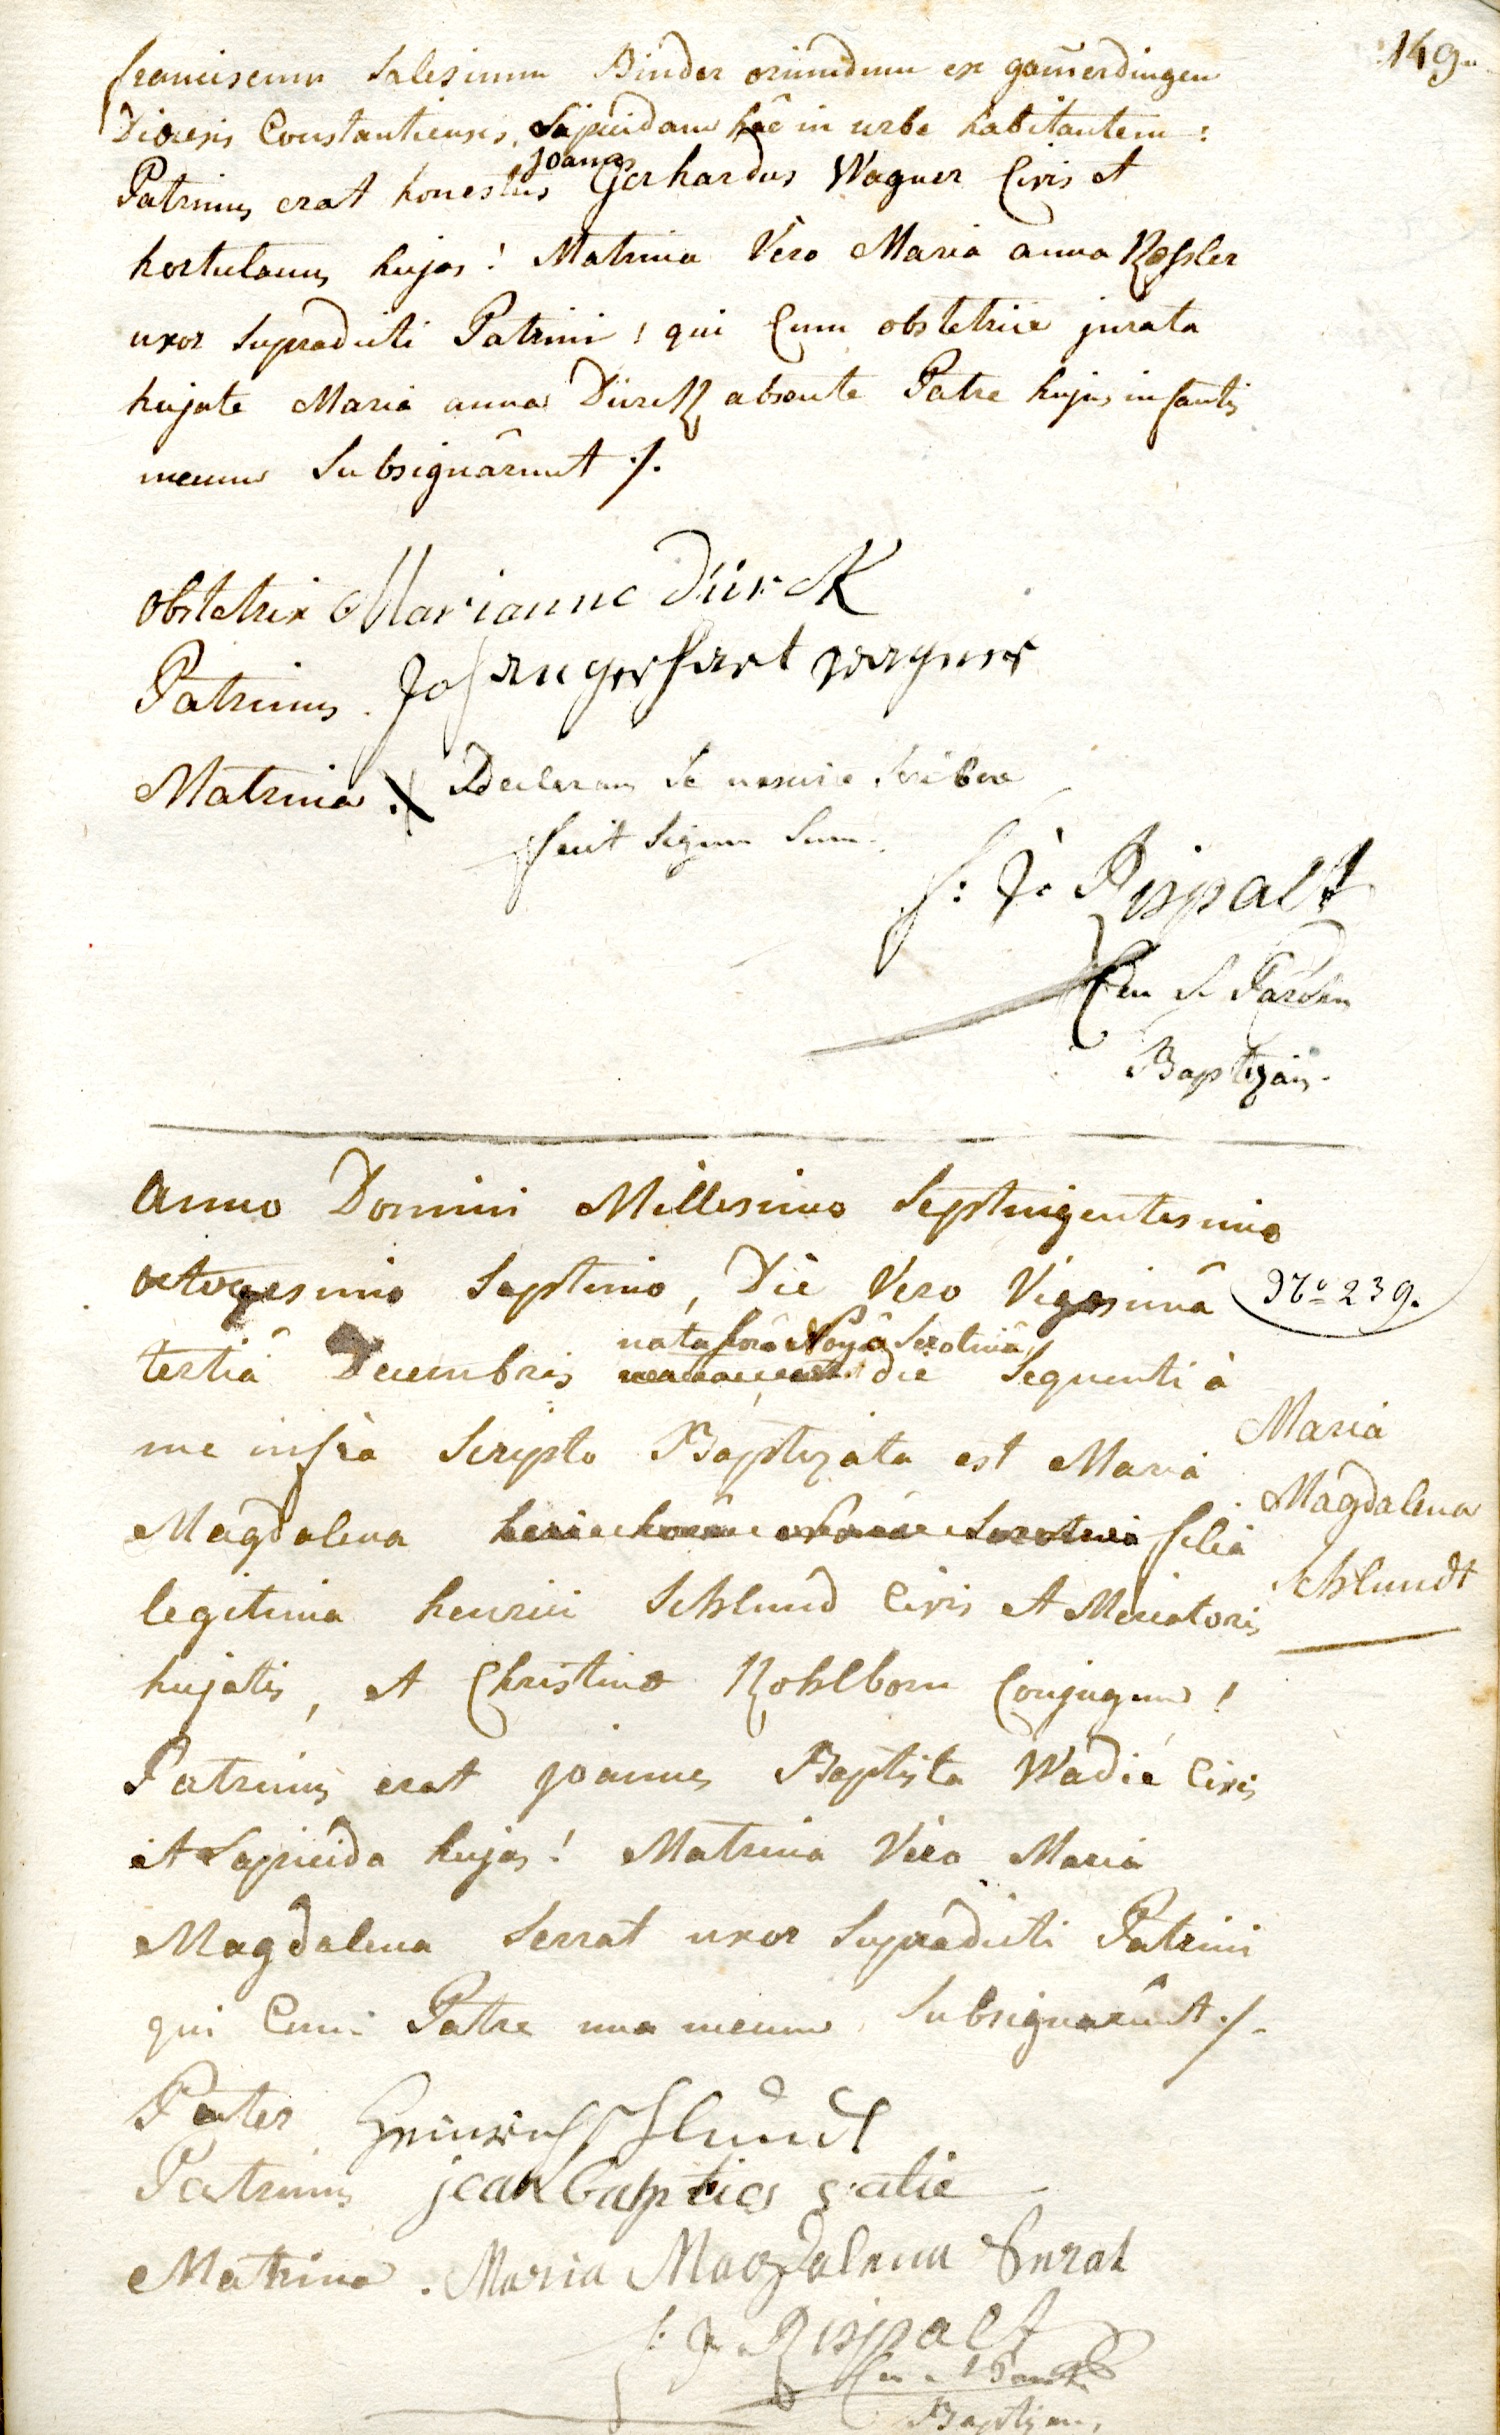 149.
franciscum Salesium Binder oriundum ex gam̄erdingen
Diœcesis Constantiensis, Lapicidam hâc in urbe habitantem:
Joannes
Patrinus erat honestus Gerhardus Wagner Civis et
hortulanus hujas! Matrina Vero Maria anna Kessler
uxor Supradicti Patrini! qui Cum obstetrice jurata
hujate Maria anna Dürck absente Patre hujus infantis
mecum Subsignârunt ./.
obstetrix Marianne Dürck
Patrinus. Johan gerhart wagner
Matrina. X Declarans Se nescire Scribere
fecit Signum Suum.
f: J: Rispalt
Baptizans.
Anno Domini Millesimo Septingentesimo
octogesimo Septimo, Die Vero Vigesimâ
No 239.
nata horâ Nonâ Serotinâ
tertiâ Decembris die Sequenti à
me infra Scripto Baptizata est Maria
Maria
Magdalena filia
Magdalena
legitima henrici Schlund Civis et Mercatoris
Schlundt
hujatis, et Christinæ Kohlborn Conjugum!
Patrinus erat Joannes Baptista Wadié Civis
et Lapicida hujas! Matrina Vero Maria
Magdalena Serrat uxor Supradicti Patrini
qui Cum Patre una mecum Subsignarûnt ./.
Pater Heinrich Schlundt
Patrinus jean bapties vatie
Matrina. Maria Magdalena Serat
f: J: Rispalt
Baptizans.